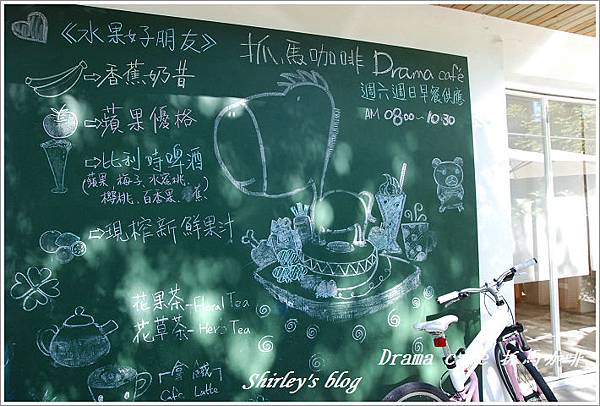 《水果好朋友》
⇨香蕉奶昔
⇨蘋果優格
⇨比利時啤酒
(蘋果, 梅子, 水蜜桃,
櫻桃, 百香果, 蕉)
⇨現榨新鮮果汁
花果茶-Floral Tea
花草茶-Herb Tea
拿鐵
Cafe Latte
抓馬咖啡 Drama café
週六週日早餐供應
AM 08:00~10:30
Drama café 抓馬咖啡
Shirley's blog